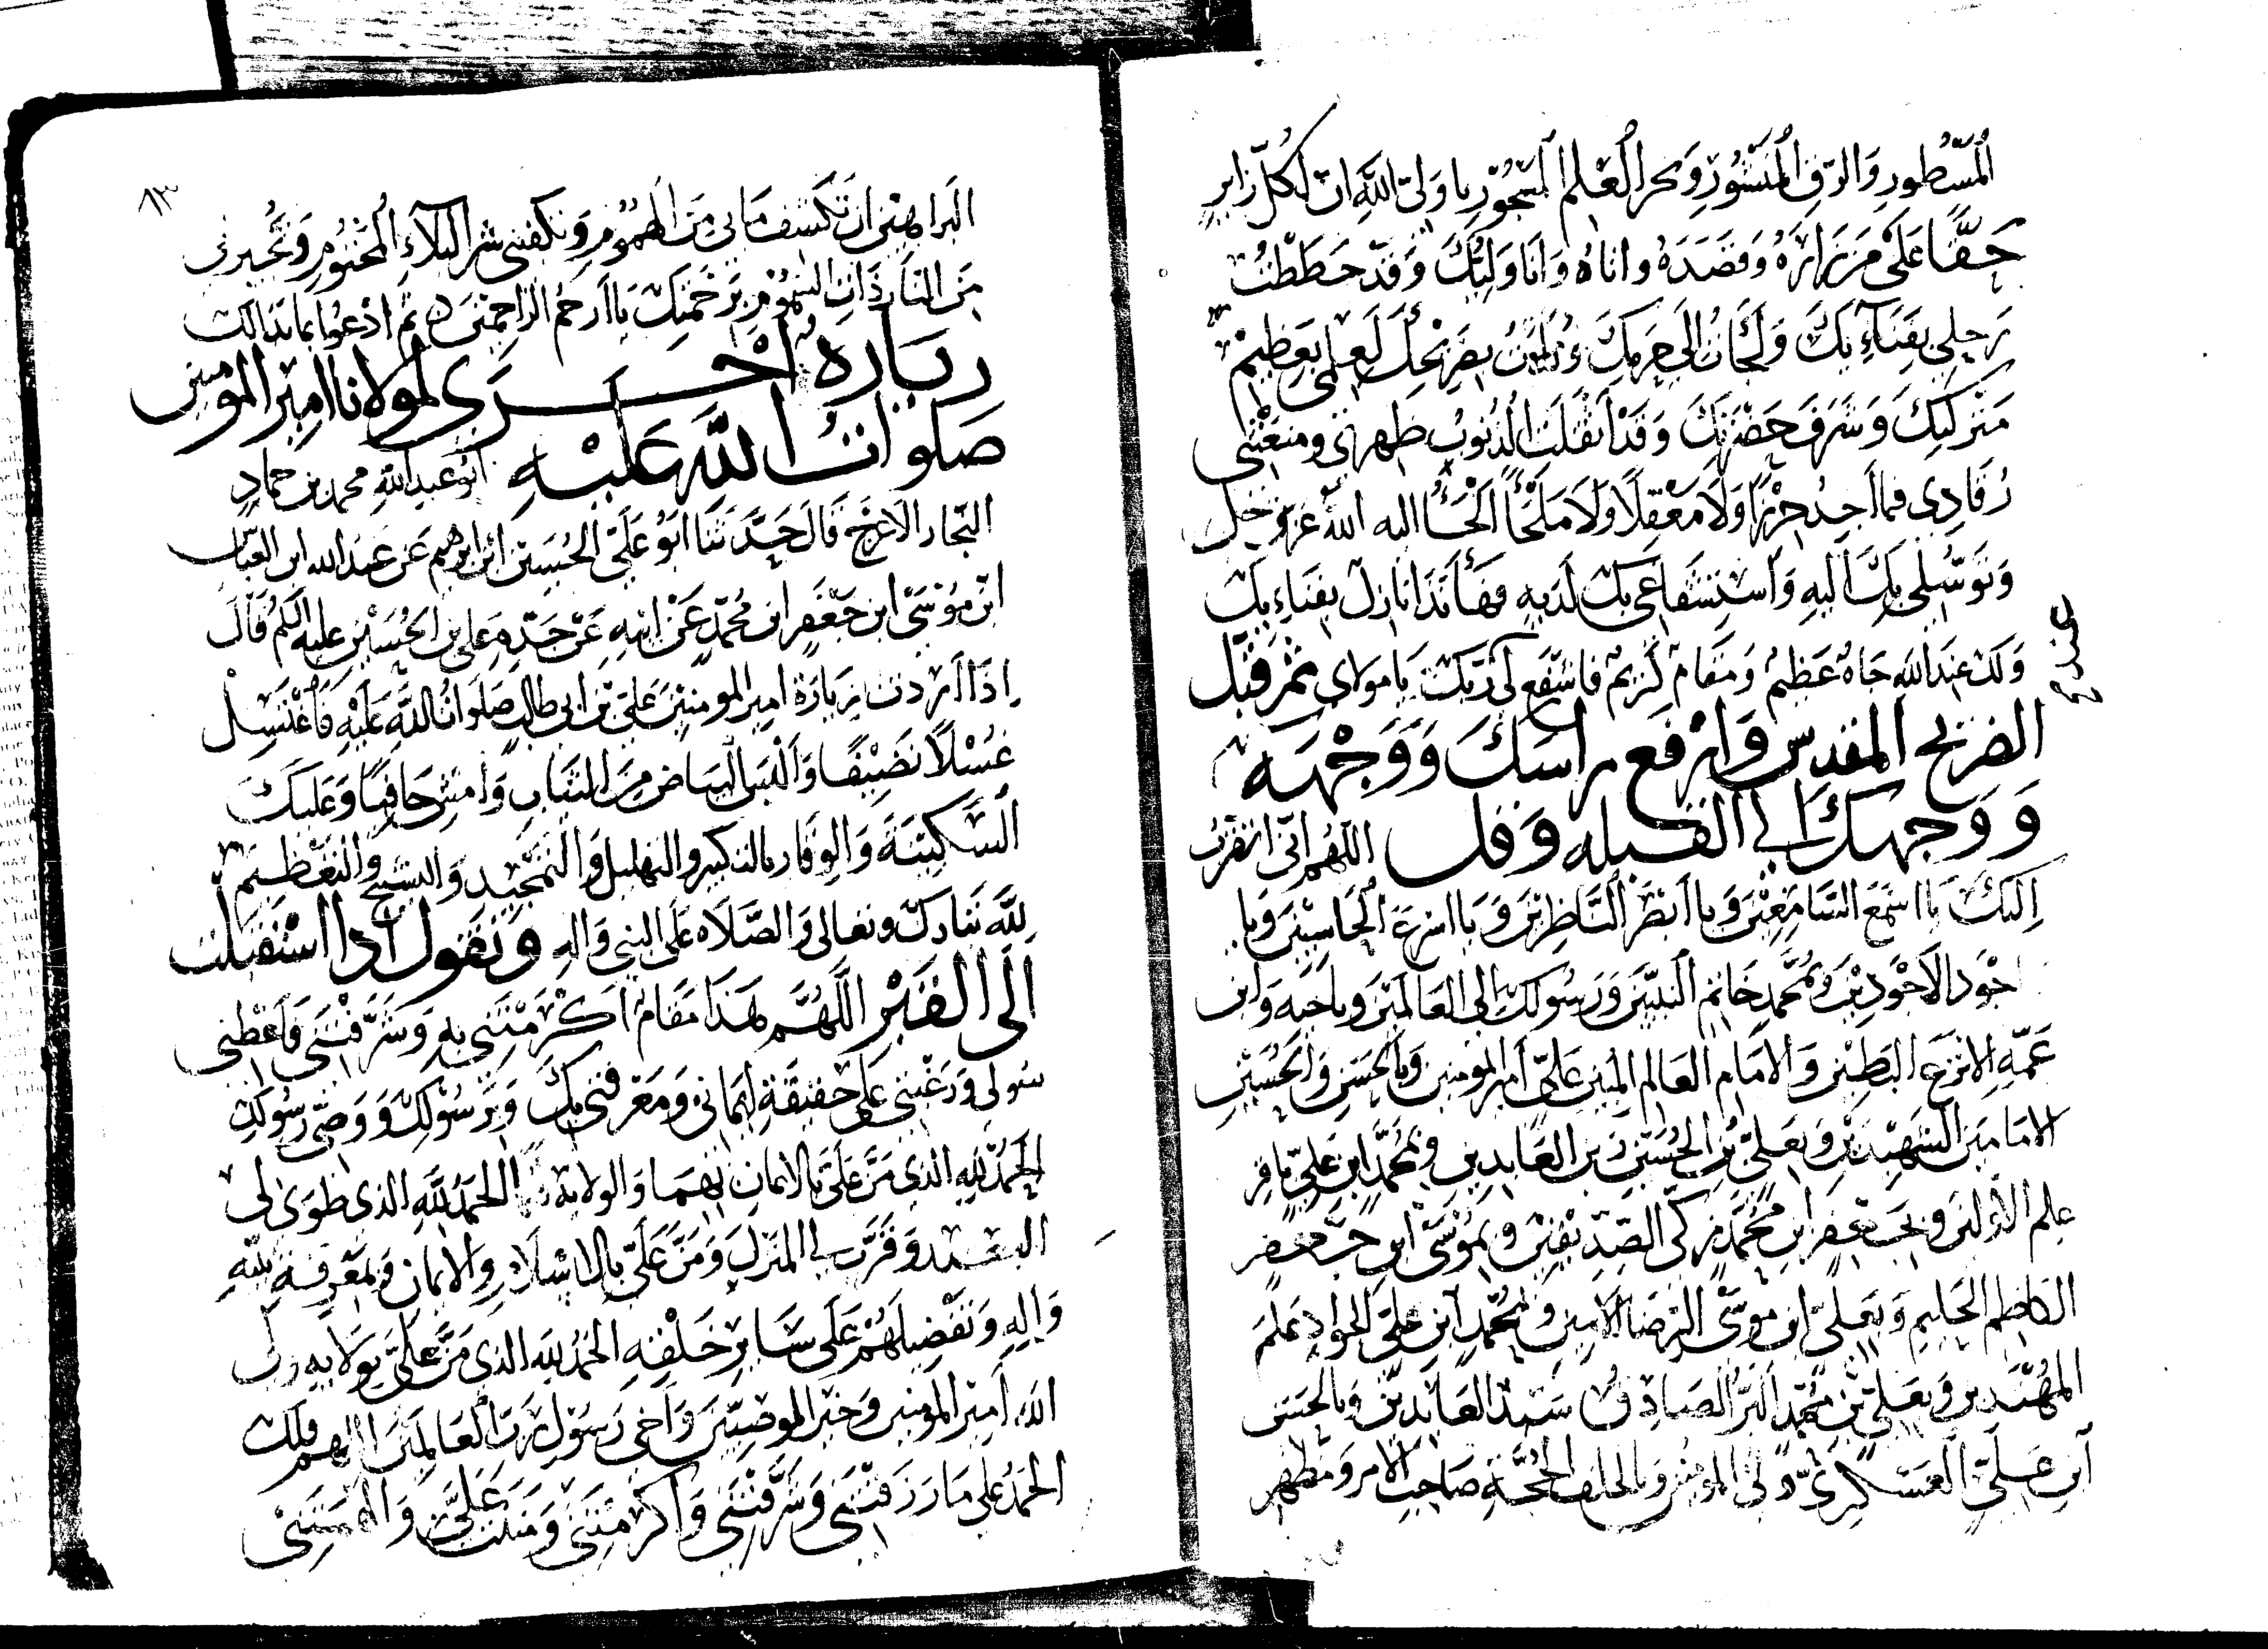 المسطور والرق المنشور وبحر العلم المسجور يا ولي الله ان لكل زاير
حقا على من زاره وقصده واتاه وانا وليك وقد حططت
رحلي بفناءك ولجات الى حرمك ولذت بضريحك لعلمي بعظيم
منزلتك وشرف حضرتك وقد اثقلت الذنوب ظهري ومنعتني
رقادي فما اجد حرزا ولا معقلا ولا ملجأ الجأ اليه الا الله عز وجل
وتوسلي بك اليه واستشفاعي بك لديه فها انذا نازل بفناءك
ولك عند الله جاه عظيم ومقام كريم فاشفع لي ربك يا مولاي ثم قبل
الضريح المقدس وارفع راسك ووجهه
ووجهك الى القبله وقل اللهم اني اتقرب
اليك يا اسمع السامعين ويا ابصر الناظرين ويا اسرع الحاسبين ويا
اجود الاجودين بمحمد خاتم النبيين ورسولك الى العالمين وباخيه وابن
عمه الانزع البطين والامام العالم المبين علي امير المومنين وبالحسن والحسين
الامامين الشهيدين وبعلي بن الحسين زين العابدين وبمحمد ابن علي باقر
علم الاولين وبجعفر ابن محمد زكي الصديقين وبموسى ابن جعفر
الكاظم الحليم وبعلي ابن موسى الرضا الامين وبمحمد ابن علي الجواد علم
المهتدين وبعلي بن محمد البر الصادق سيد العابدين وبالحسن
ابن علي العسكري ولي المومنين وبالخلف الحجة صاحب الامر ومظهر
عندي
٨٣
البراهين ان تكشف ما بي من الهموم وتكفيني شر البلاء المحتوم وتجيرني
من النار ذات السموم برحمتك يا ارحم الراحمين ثم ادعوا بما بدا لك
زيارة اخرى لمولانا امير المومنين
صلوات الله عليه ابو عبد الله محمد بن حماد
النجار الاعرج قال حدثنا ابو علي الحسين ابن ابرهيم عن عبد الله ابن العباس
ابن موسى ابن جعفر ابن محمد عن ابيه عن جده علي بن الحسين عليه السلم قال
اذا اردت زيارة امير المومنين علي بن ابي طالب صلوات الله عليه فاغتسل
غسلا نضيفا والبس البياض من الثياب وامش حافيا وعليك
السكينة والوقار بالتكبير والتهليل والتمجيد والتسبيح والتعظيم
لله تبارك وتعالى والصلاه على النبي واله وتقول اذا استقبلت
الى القبر اللهم هذا مقام اكرمتني به وشرفتني فاعطني
سولي ورغبتي على حقيقة ايماني ومعرفتي بك وبرسولك ووصي رسولك
الحمد لله الذي من علي بالايمان بهما والولاية الحمد لله الذي طوى لي
البعيد وقرب لي المنزل ومن علي بالاسلام والايمان وبمعرفة نبيه
واله وتفضيلهم على ساير خلقه الحمد لله الذي من علي بولايه ولي
الله امير المومنين وخير الموصيين واخي رسول رب العالمين اللهم فلك
الحمد على ما رزقتني وشرفتني واكرمتني ومننت علي